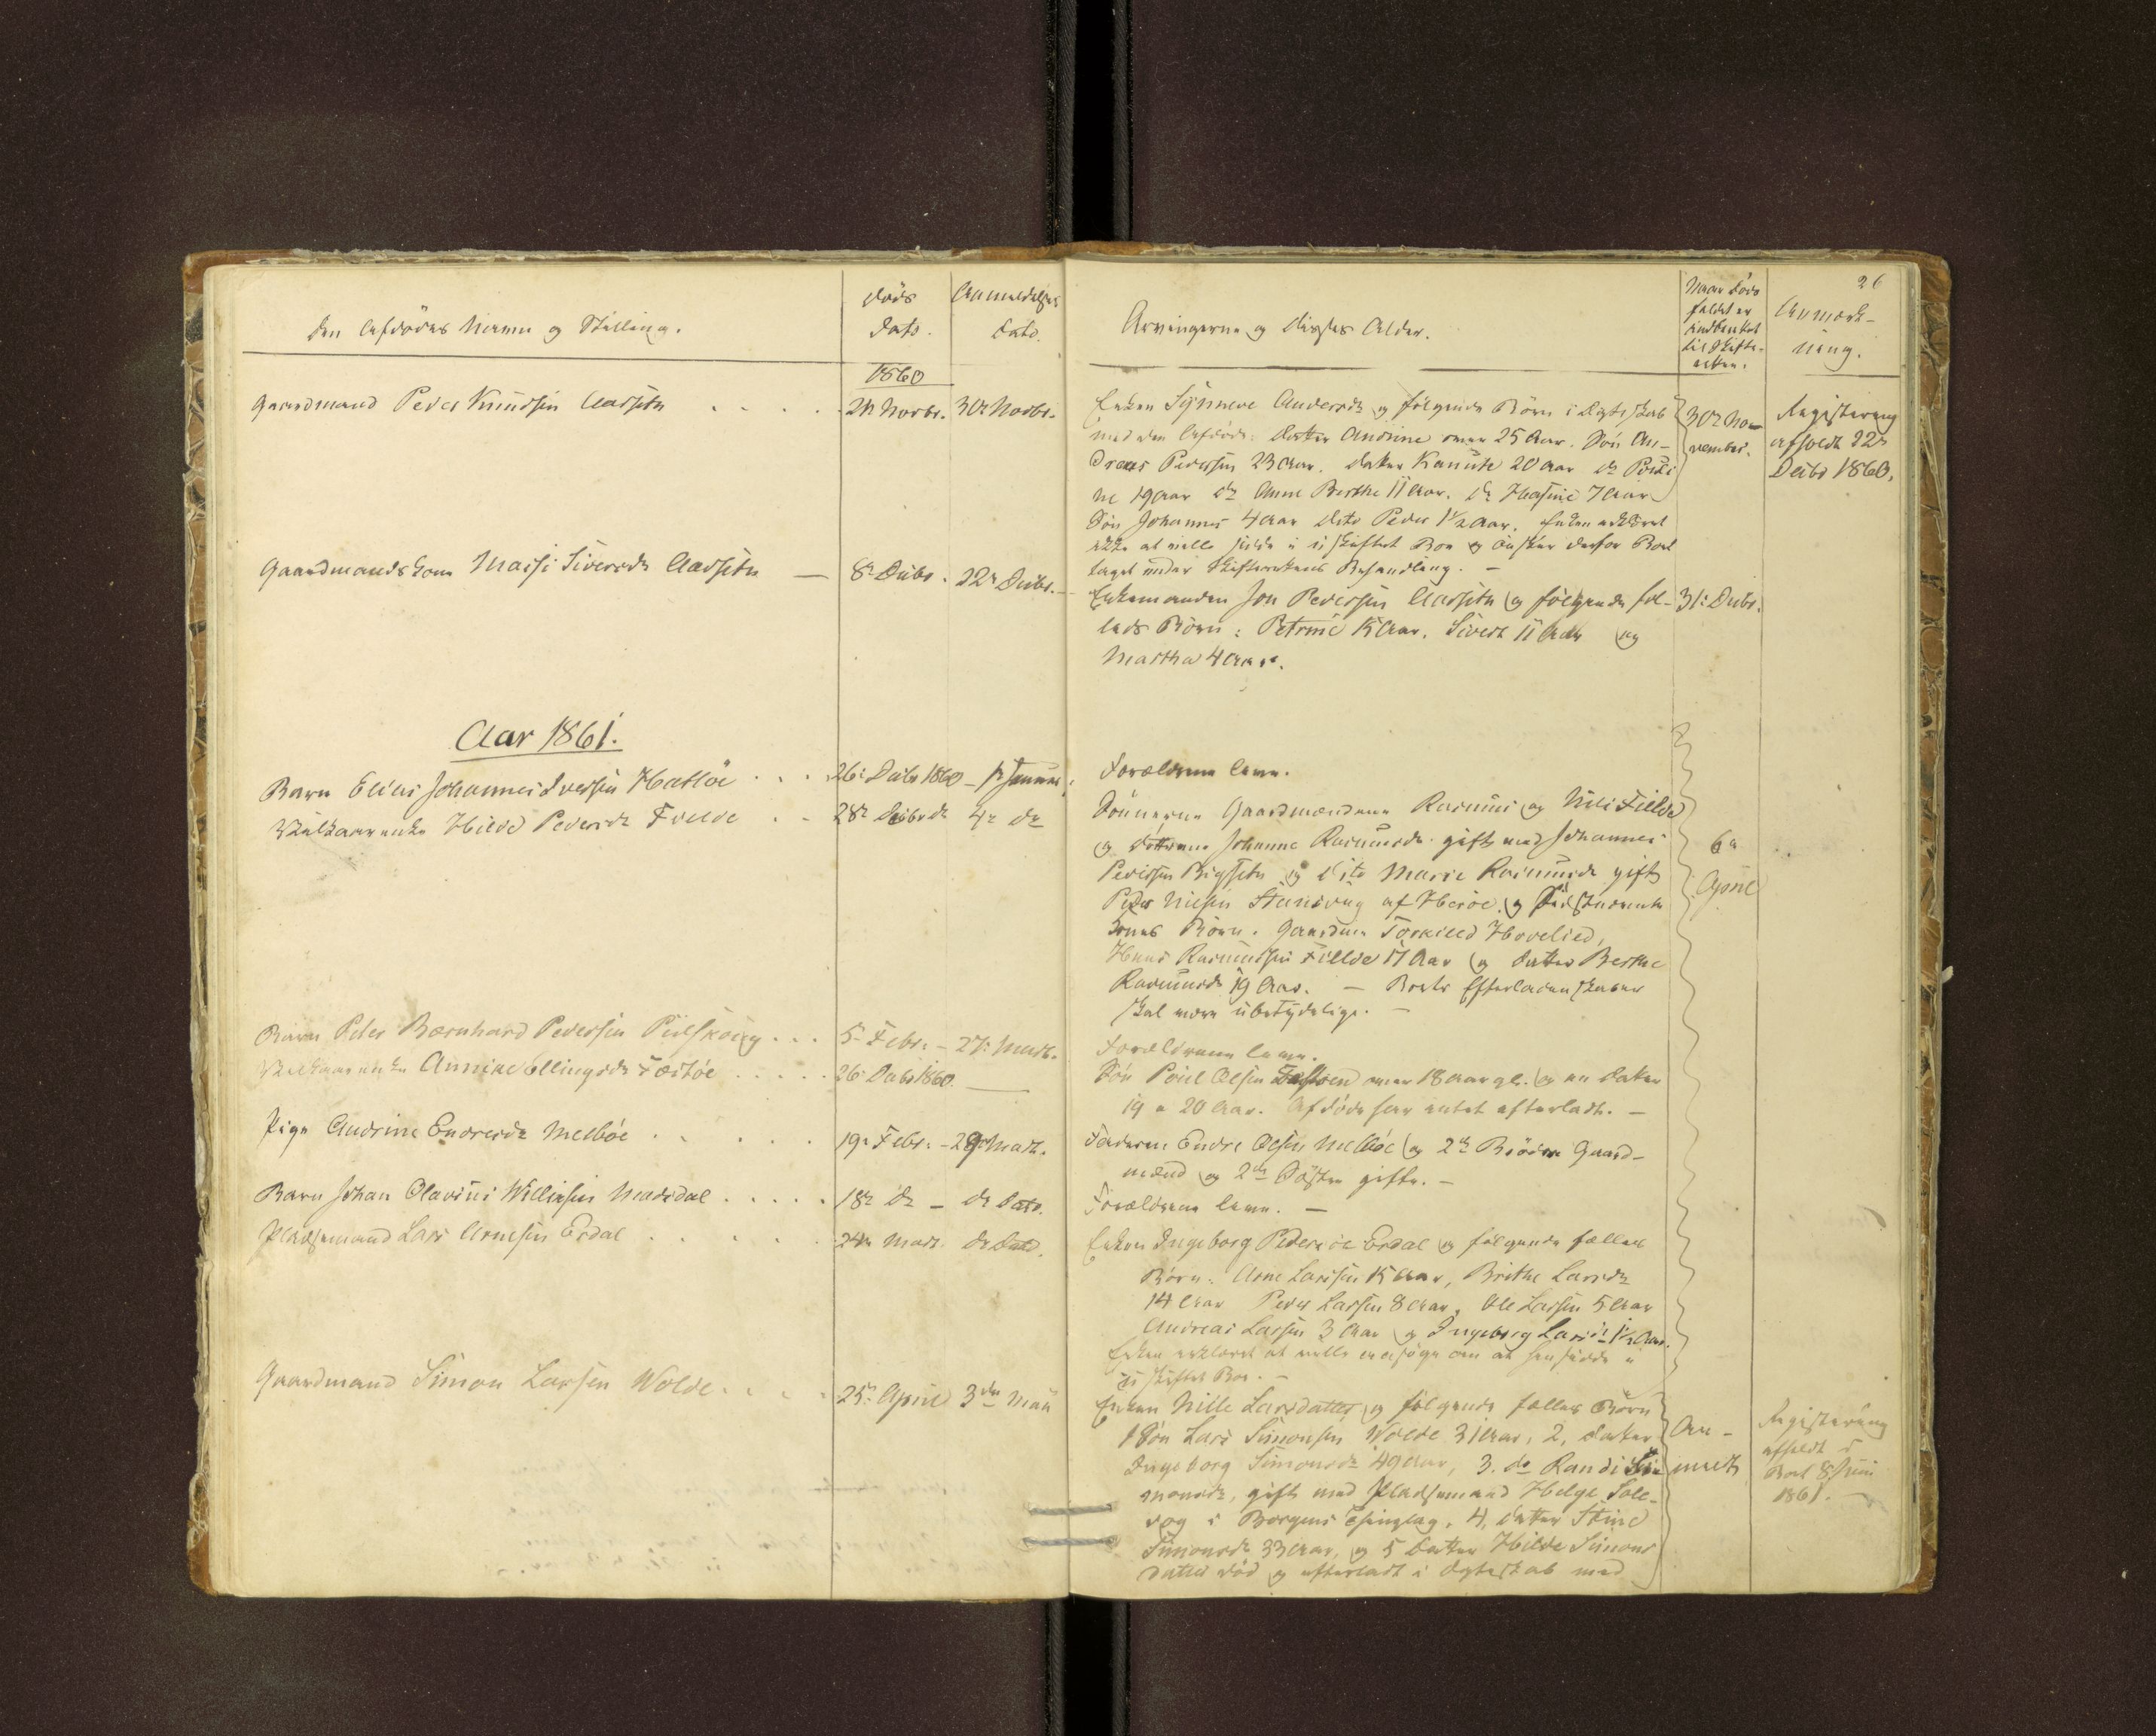 26
Den Afdødes Navn og Stilling.
Døds
Dato.
Anmeldelses
Dato.
Arvingerne og disses Alder.
Naar Døds
faldet er
indberettet
til Skifte-
retten.
Anmærk-
ning.
1860
Gaardmand Peder Knudsen Aarseth
24 Novbr. 30te Novbr.
Enken Synneve Andersdr og følgende Børn i Ægteskab
med den Afdøde: Datter Andrine over 25 Aar. Søn An-
dreas Pedersen 23 Aar. Datter Kanute 20 Aar do Pouli
ne 19 Aar do Anne Berthe 11 Aar. do Hasine 7 Aar
Søn Johannes 4 Aar dito Peder 1½ Aar. Enken erklæret
ikke at ville sidde i uskiftet Boe og ønsker derfor Boet
taget under Skifterettens Behandling. —
30te No-
vember.
Registrering
afholdt 22de
Decbr 1860.
Gaardmandskone Massi Siversdr Aarseth —
8de Decbr. 22de Decbr. —
Enkemanden Jon Pedersen Aarseth og følgende fæl-
leds Børn: Petrine 15 Aar. Sivert 11 Aar og
Martha 4 Aar.
31te Decbr.
Aar 1861.
Barn Elias Johannes Iversen Hatløe
26de Decbr 1860 — 1te Januar.
Forældrene leve.
Vilkaarsenke Hilde Pedersdr Fielde
28de Decbr do 4de do
Sønnerne Gaardmændene Rasmus og Nils Fielde
og døttrene Johanne Rasmusdr gift med Johannes
Pedersen Rigseth og dito Marie Rasmusdr gift
Peder Nilsen af Herøe og
Søns Børn. Gaardm Torkild Hovelied,
Hans Rasmussen Fielde 17 Aar og datter Berthe
Rasmusdr 19 Aar. — Boets Efterladenskaber
skal være ubetydelige. —
6te
April
Barn Peder Bernhard Pedersen Pilskoug
5 Febr. — 27de Marts.
Forældrene leve.
Vilkaarsenke Annike Ellingsdr Festøe
26de Decbr 1860. —
Søn Poul Olsen Festøen over 18 Aar gl. og en datter
19 a 20 Aar. Afdøde har intet efterladt. —
Pige Andrine Endresdr Melbøe
19de Febr. — 29de Marts.
Faderen Endre Olsen Melbøe og 2de Brødre Gaard-
mænd og 2de Søstre gifte. —
Barn Johan Olavius Willessen Mardal
18de do — do Dato.
Forældrene leve. —
Pladsemand Lars Arnesen Erdal
24de Marts do Dato.
Enken Ingeborg Pedersdr Erdal og følgende fælles
Børn: Arne Larssen 15 Aar, Brithe Larsdr
14 Aar Peder Larssen 8 Aar, Ole Larssen 5 Aar
Andreas Larssen 3 Aar og Ingeborg Larsdr 1½ Aar.
Enken erklæret at ville ansøge om at hensidde i
uskiftet Boe. —
Gaardmand Simon Larssen Wolde
25de April 3die Mai
Enken Nille Larsdatter og følgende fælles Børn
1 Søn Lars Simonsen Wolde 31 Aar, 2, Datter
Ingeborg Simonsdr 49 Aar, 3. do Randi Si-
monsdr, gift med Pladsemand Helge Sole-
vog i Borgens Thinglag, 4, datter Stine
Simonsdr 33 Aar, og 5 Datter Hilde Simons
datter død og efterladt i Ægteskab med
An-
meldt
Registrering
afholdt i
Boet 8 Juni
1861. —